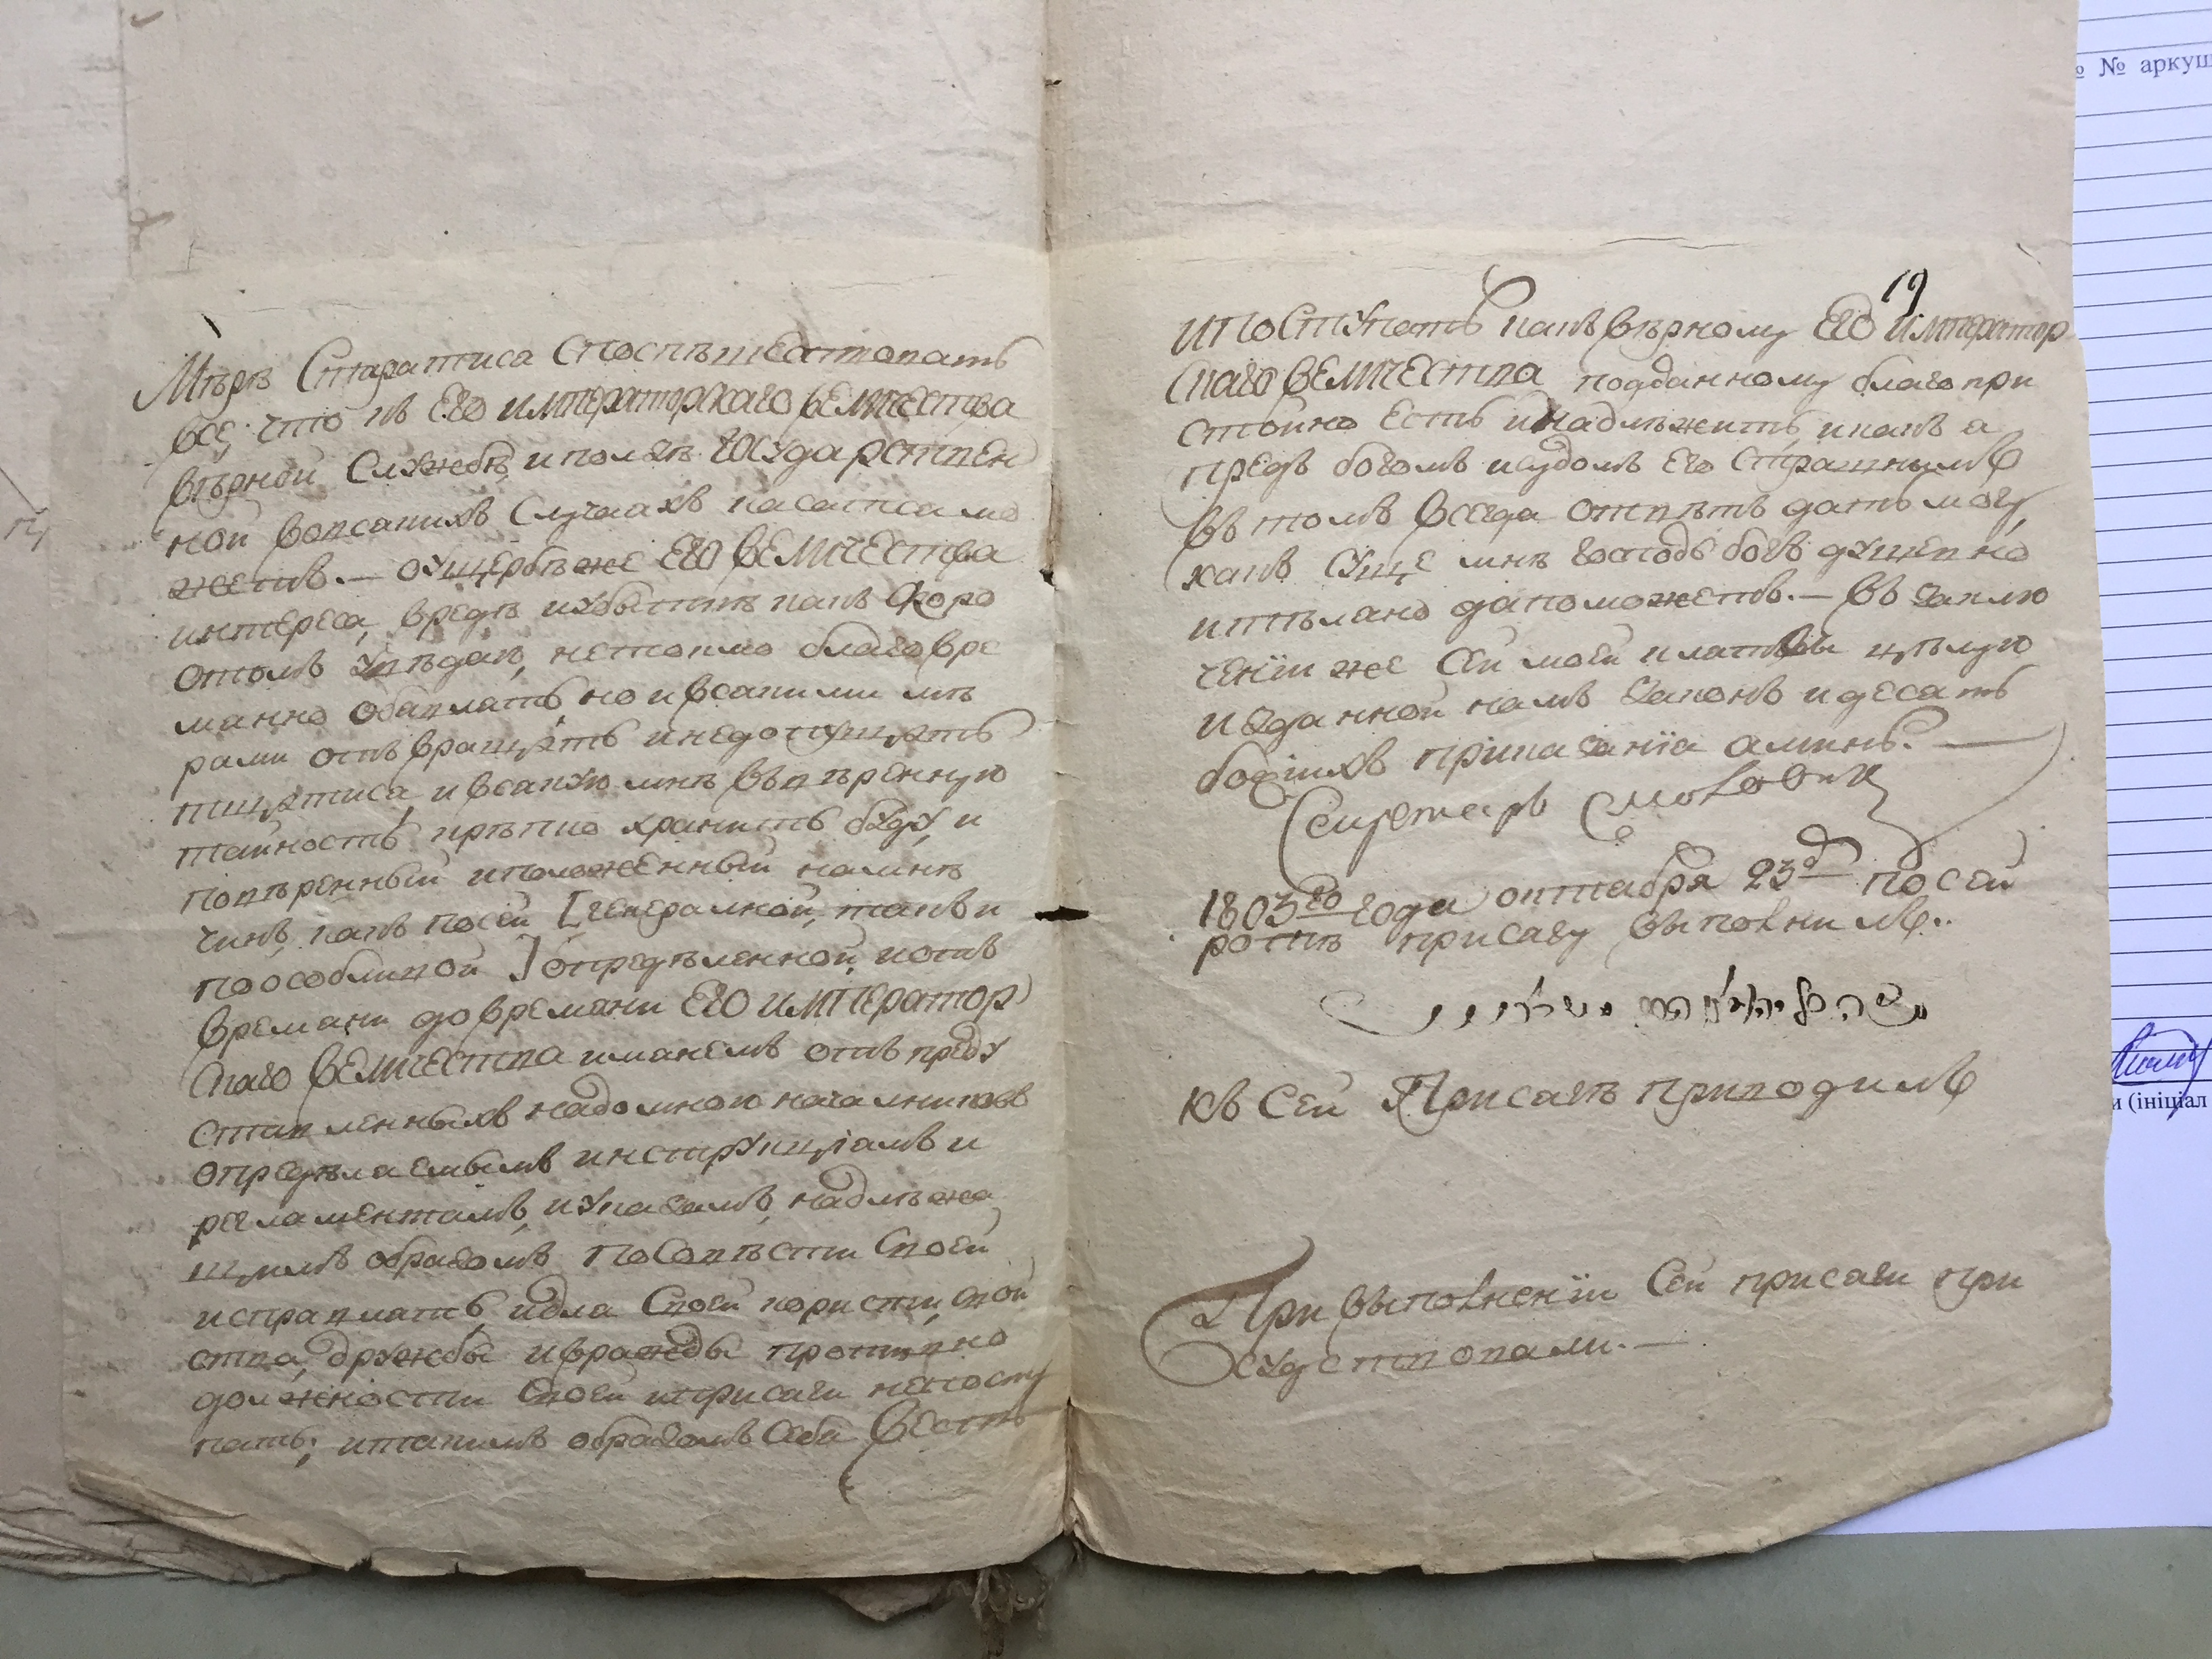 Мѣрѣ Старатися споспѣшествовать
все, что къ ЕГО ИМПЕРАТОРСКАГО ВЕЛИЧЕСТВА
вѣрной Службѣ, и ползѣ Государствен
ной вовсякихъ Случаяхъ касатися мо
жетъ. — о ущербѣ же ЕГО ВЕЛИЧЕСТВА
интереса, вредѣ и убыткѣ какъ скоро
отомъ увѣдаю, нетокмо благовре
манно обявлять но и всякими мѣ
рами отъвращать и недопущать
тщатися, и всякую мнѣ ввѣренную
тайность крѣпко хранить буду, и
повѣренный и положенный намнѣ
чинъ, какъ посей [генералной, такъ и
поособливой ] опредѣленной, и отъ
времани до времани ЕГО ИМПЕРАТОР
скаго ВЕЛИЧЕСТВА иманемъ отъ преду
ставленныхъ надомною началниковъ
опредѣляемымъ инструкціамъ и
регламентамъ, и Указамъ, надлѣжа
щимъ образомъ посовѣсти Своей
исправлять, и для Своей користи, свой
ства, дружбы и вражды противно
должности Своей и присяги непосту
пать; и такимъ образомъ Себя Весть
19
и поступать какъ вѣрному ЕГО ИМПЕРАТОР
скаго ВЕЛИЧЕСТВА подданному благопри
стойно есть и надлѣжитъ, и какъ я
предъ богомъ и судомъ Его страшнымъ
въ томъ всегда отвѣтъ дать могу,
какъ Суще мнѣ Господь богъ душевно
и тѣлано да поможетъ. — Въ заклю
ченїи же сей моей клятвы цѣлую
изданной намъ законъ и десять
божіихъ приказанїа аминь. —
Секретарь
1803го года октабря 23д посей
ротѣ присягу выполнилъ..
къ Сей Присягѣ приводилъ
При выполненїи Сей присяги при
судствовали. —
№ аркуш
и (ініціал